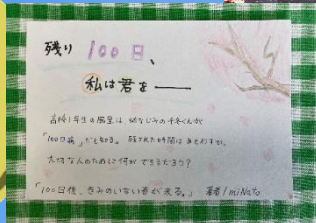 残り 100日、
私は君を――
高校1年生の
幼なじみの千冬くんが
「100日後
残された時間はあとわずか。
大切な人のために何ができるだろう？
「100日後、きみのいない春が来る。」 著者/miNato